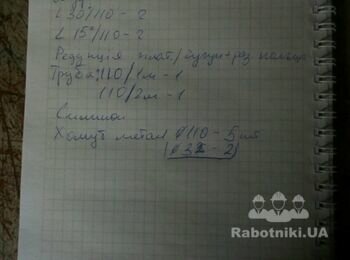 ∠ 30/110 - 2
∠ 15°/110 - 2
Редукція пласт./чугун + рез. кольцо
Труба: 110/1м - 1
110/2м - 1
Силикон
Хомут метал ⌀110 - 5 шт
(⌀32 - 2)
Rabotniki.UA